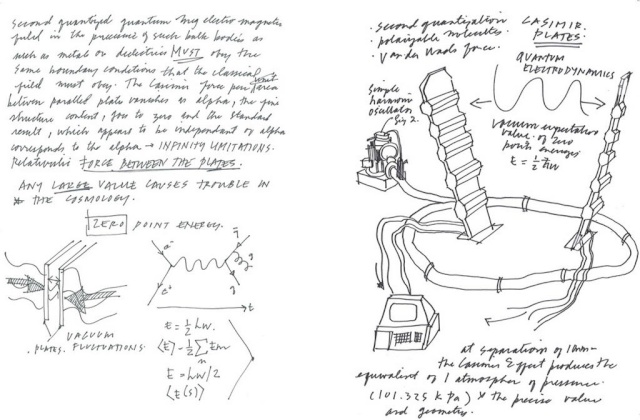 second quantized quantum
field in the presence of such bulk bodies
as metals or dielectrics MUST obey the
same boundary conditions that the classical
field must obey. The Casimir force per unit area
between parallel plate vanishes as alpha, the fine
structure content, goes to zero and the standard
result, which appears to be independant of alpha
corresponds to the alpha → INFINITY LIMITATIONS.
Relativistic FORCE BETWEEN THE PLATES.
ANY LARGE VALUE CAUSES TROUBLE IN
* THE COSMOLOGY.
ZERO POINT ENERGY.
e⁻
q̄
g
q
e⁺
t
VACUUM
PLATES. FLUCTUATIONS.
E = ½ ħω.
⟨E⟩ = ½ Σ Em
n
E = ħω/2
⟨E(s)⟩
second quantization
. polarizable molecules.
. Van der Waals force.
CASIMIR
PLATES.
QUANTUM
ELECTRODYNAMICS
simple
harmonic
oscillator
fig 2.
Vacuum expectation
value of zero
point energies
E = ½ ħω
at separations of 10nm-
the Casimir Effect produces the
equivalent of 1 atmosphere of pressure.
(101.325 kPa) * the precise value
and geometry.